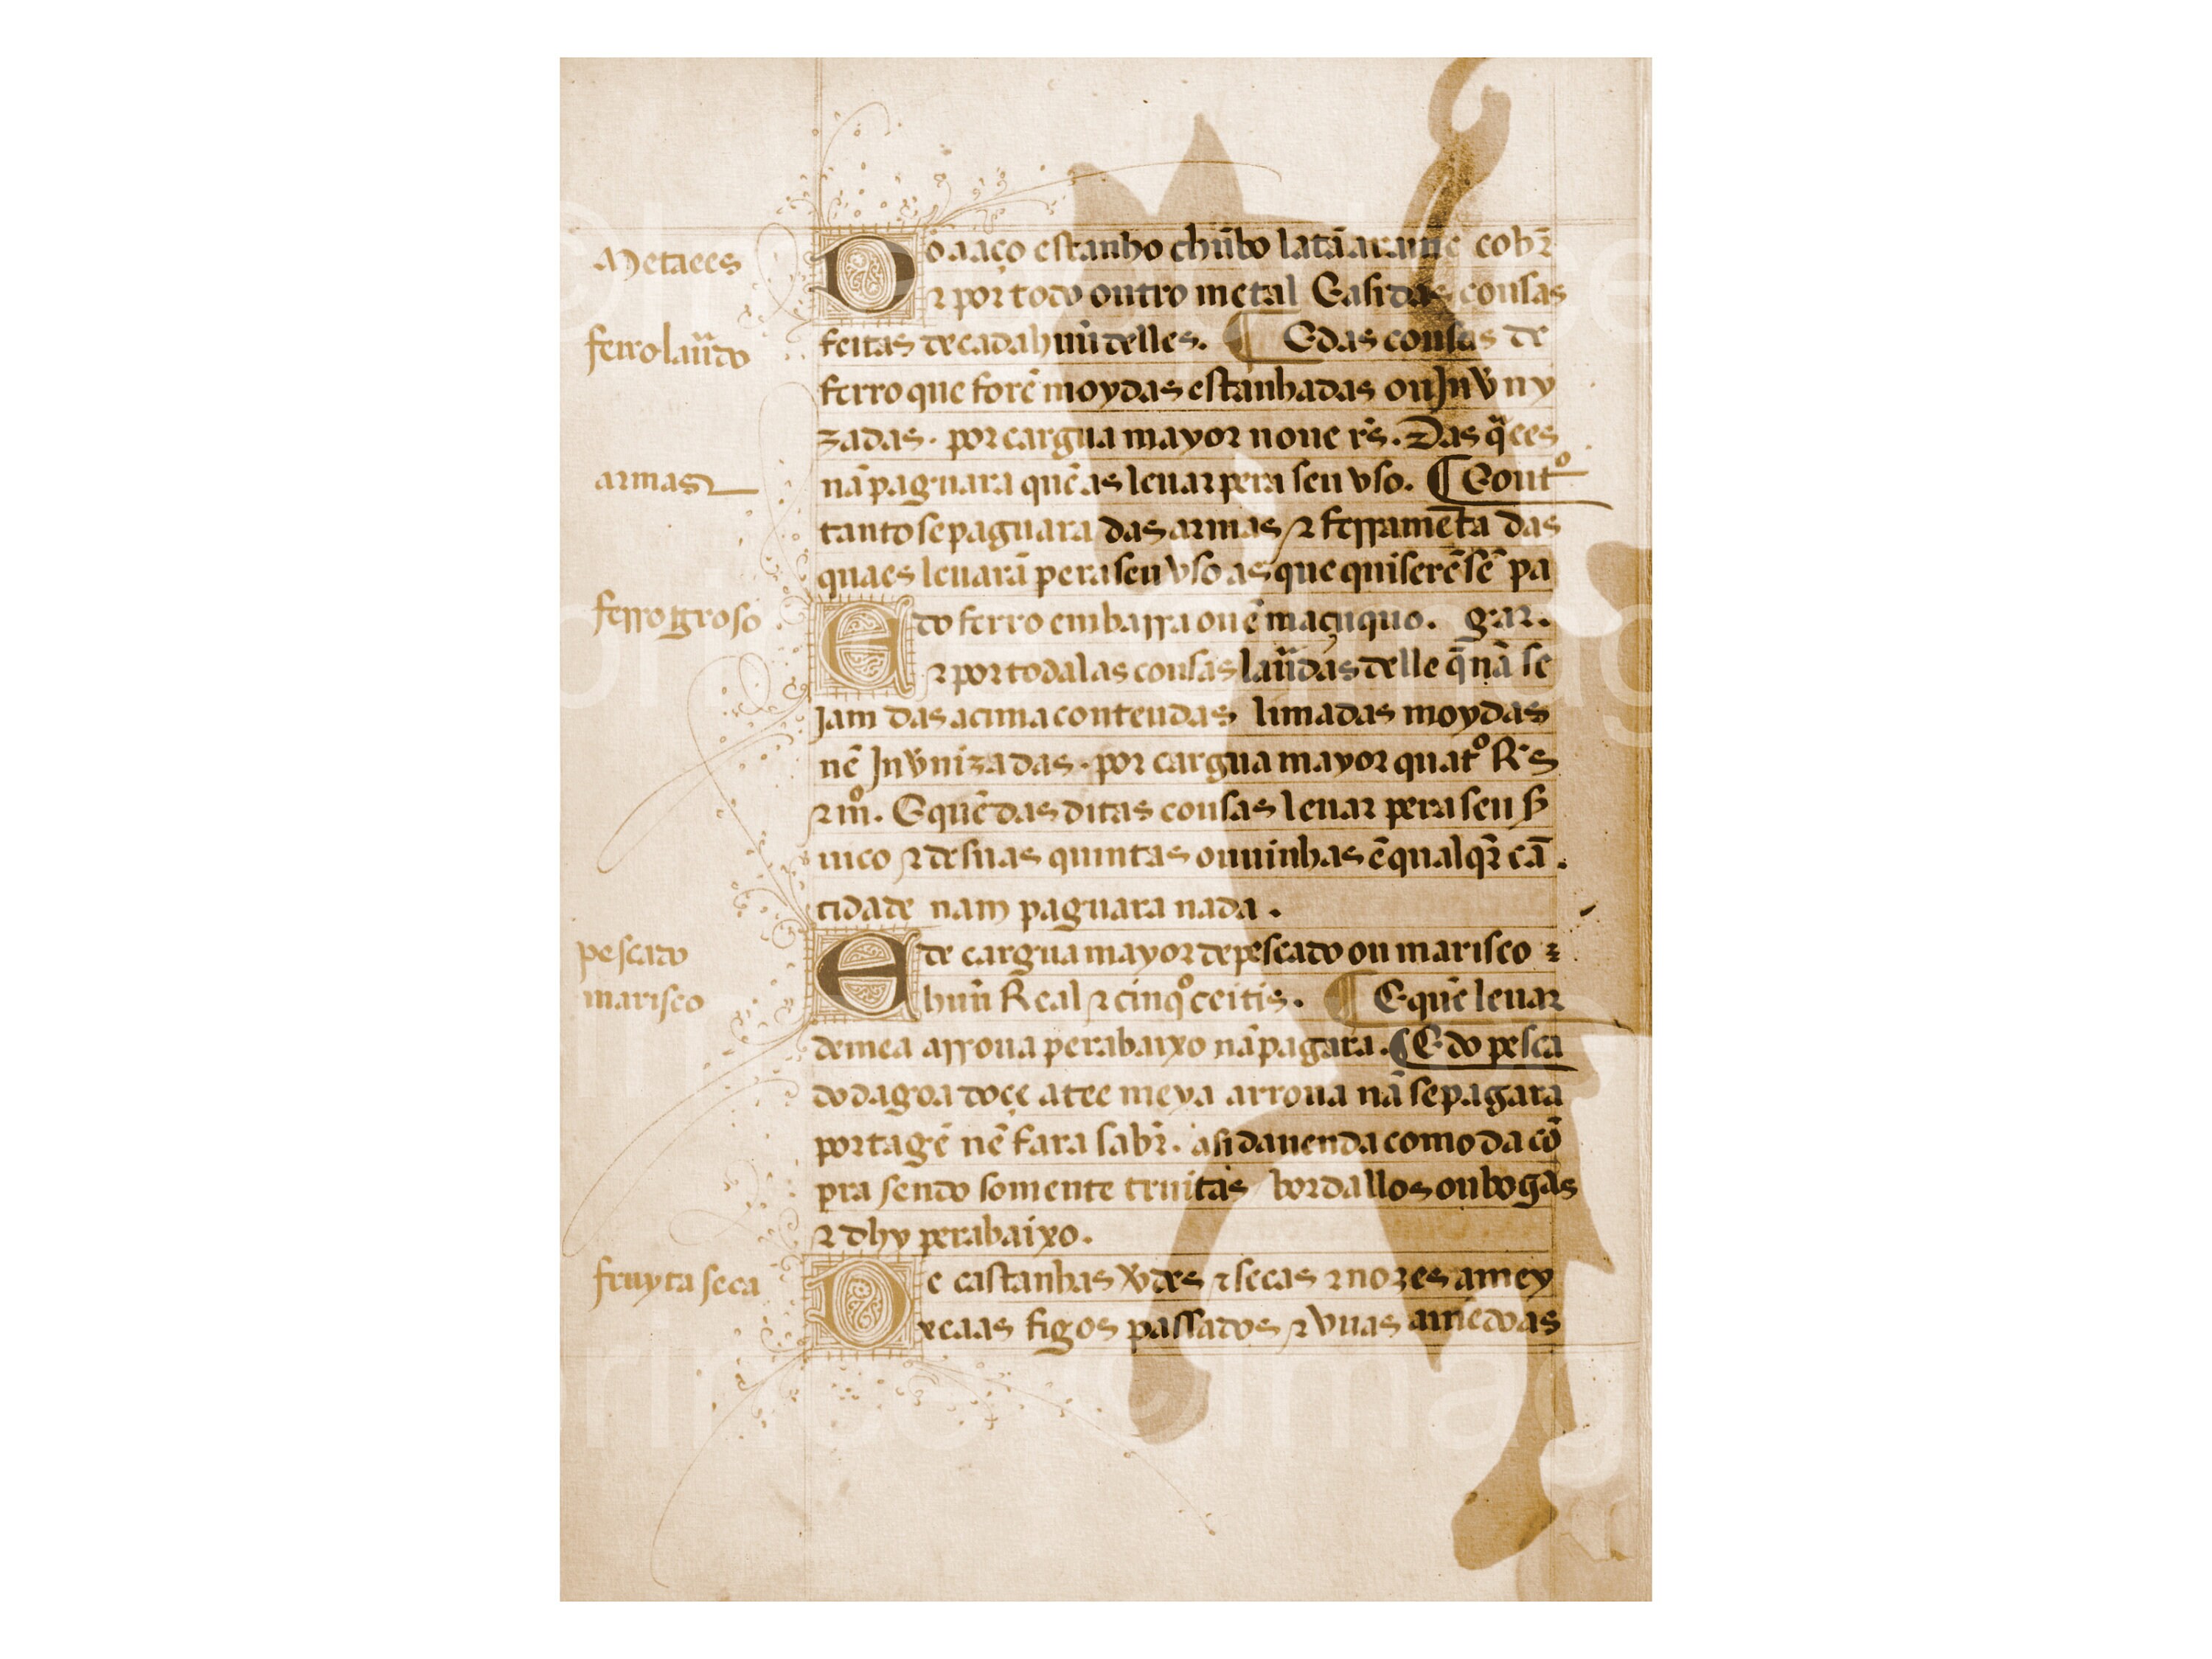 Metaees
Do aaço estanho chũbo latã arame cobr̃
⁊ por todo outro metal E asi das cousas
ferro laũdo
feitas de cadahuũ delles. ¶ E das cousas de
ferro que forẽ moydas estanhadas ou Jnvrny
zadas. por cargua mayor noue r̃s. Das q̃ees
armas
nã paguara quẽ as leuar pera seu vso. ¶ E outº
tanto se paguara das armas ⁊ ferramẽta das
quaes leuarã pera seu vso as que quiserẽ sẽ pa
ferro groso
E do ferro em barra ou ẽ maçuquo. guar.
⁊ por todalas cousas laũdas delle q̃ nã se
jam das acima conteudas limadas moydas
nẽ Jnvrnizadas. por cargua mayor quatº R̃s
⁊ mº. E quẽ das ditas cousas leuar pera seu s̃
uico ⁊ de suas quintas ou uinhas ẽ qualqr̃ cã
tidade nam paguara nada.
pescado
E de cargua mayor de pescado ou marisco ⁊
marisco
huũ Real ⁊ cinqº ceitis. ¶ E quẽ leuar
de mea arroua pera baixo nã pagara. ¶ E do pesca
do dagoa doçe atee meya arroua nã se pagara
portagẽ nẽ fara sabr̃. asi da uenda como da cõ
pra sendo somente truitas bordallos ou bogas
⁊ dhy pera baixo.
fruyta seca
De castanhas ṽdes ⁊ secas ⁊ nozes amey
xeaas figos passados ⁊ vuas amẽdoas